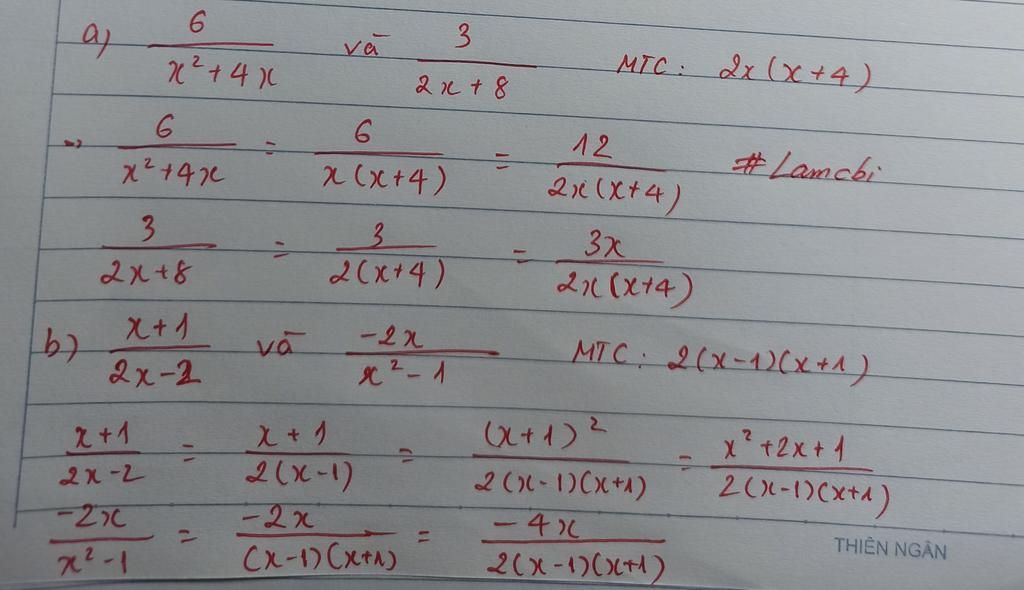 a) 6/(x²+4x) và 3/(2x+8) MTC: 2x(x+4)
→ 6/(x²+4x) = 6/(x(x+4)) = 12/(2x(x+4)) #Lamcbi
3/(2x+8) = 3/(2(x+4)) = 3x/(2x(x+4))
b) (x+1)/(2x-2) và (-2x)/(x²-1) MTC: 2(x-1)(x+1)
(x+1)/(2x-2) = (x+1)/(2(x-1)) = (x+1)²/(2(x-1)(x+1)) = (x²+2x+1)/(2(x-1)(x+1))
(-2x)/(x²-1) = (-2x)/((x-1)(x+1)) = (-4x)/(2(x-1)(x+1))
THIÊN NGÂN